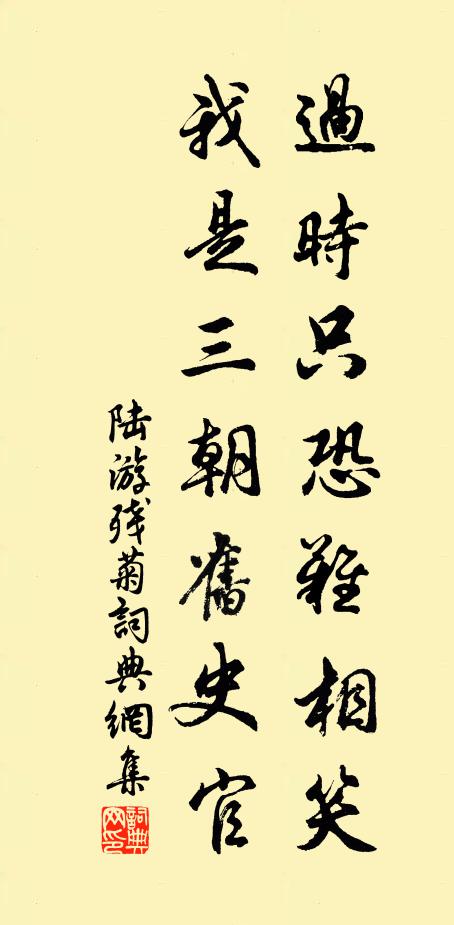 過時只恐難相笑
我是三朝舊史官
陆游残菊詞典網集
詞典網印